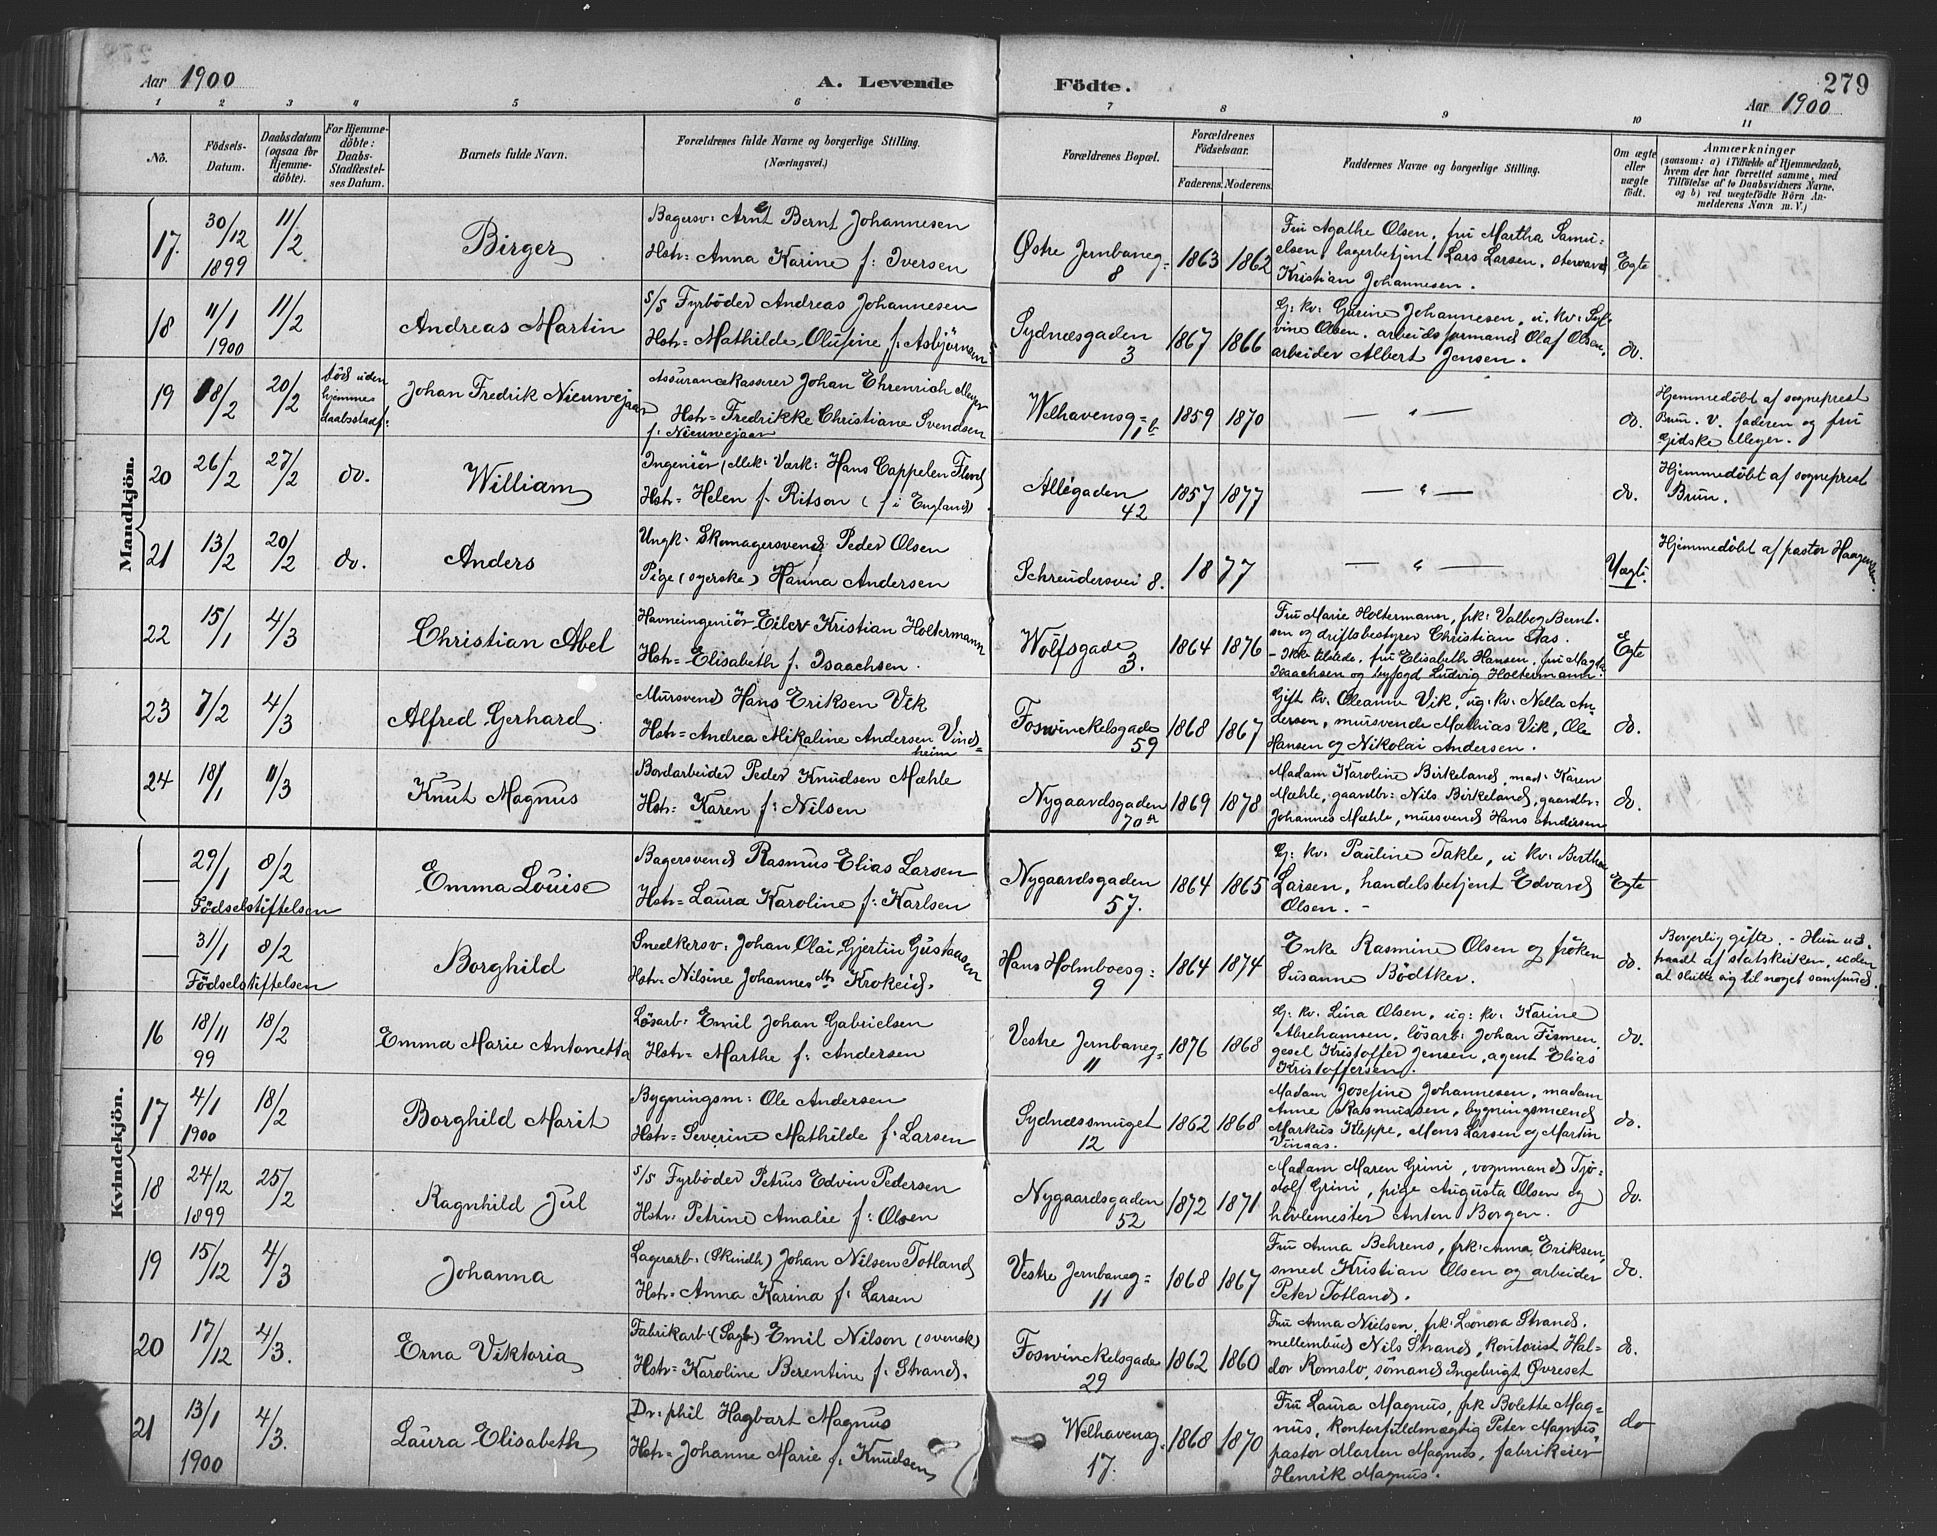 279
Aar 1900
A. Levende
Födte.
Aar 1900
1 2 3 4 5 6 7 8 9 10 11
No.
Födsels-
Datum.
Daabsdatum
(ogsaa for
Hjemme-
döbte).
For Hjemme-
döbte:
Daabs-
Stadfæstel-
ses Datum.
Barnets fulde Navn.
Forældrenes fulde Navne og borgerlige Stilling.
(Næringsvei.)
Forældrenes Bopæl.
Forældrenes
Födselsaar.
Faderens. Moderens.
Faddernes Navne og borgerlige Stilling.
Om ægte
eller
uægte
födt.
Anmærkninger
(saasom: a) i Tilfælde af Hjemmedaab,
hvem der har forrettet samme, med
Tilföielse af to Daabsvidners Navne,
og b) ved uægtefödte Börn An-
melderens Navn m. V.)
Mandkjön.
17. 30/12 1899 11/2
Birger
Bagersv: Arnt Bernt Johannesen
Hstr= Anna Karine f: Iversen
Østre Jernbaneg=
8
1863 1862
Fru Agathe Olsen, fru Martha Samu-
elsen, lagerbetjent Lars Larsen, steward
Kristian Johannesen.
Egte
18 11/1 1900 11/2
Andreas Martin
s/s Fyrböder Andreas Johannesen
Hstr= Mathilde Olufine f: Asbjörnsen
Sydnæsgaden
3
1867 1866
G: kv: Gurine Johannesen, u. kv: Syl-
vine Olsen, arbeidsformand Olaf Olsen,
arbeider Albert Jensen.
do.
19 18/2 20/2
död uden
hjemmes
daabsstadf:
Johan Fredrik Nieuwejaar
Assurancekasserer Johan Ehrenrich Meyer
Hstr= Fredrikke Christiane Svendsen
f. Nieuwejaar
Welhavensg=
1b
1859 1870
— „ —
do.
Hjemmedøbt af sogneprest
Brun. V. faderen og fru
Gidske Meyer.
20 26/2 27/2 do.
William
Ingeniör (Mek: Værk: Hans Cappelen Flood
Hstr= Helen f. Ritson (f i England)
Allégaden
42
1857 1877
— „ —
do.
Hjemmedøbt af sogneprest
Brun.
21 13/2 20/2 do.
Anders
Ungk: Skomagersvend Peder Olsen
Pige (syerske) Hanna Andersen
Schreudersvei 8.
1877
— „ —
Uægt.
Hjemmedøbt af pastor Haagensen
22 15/1 4/3
Christian Abel
Havneingeniör Eiler Kristian Holtermann
Hstr= Elisabeth f. Isaachsen.
Wolfsgade
3.
1864 1876
Fru Marie Holtermann, frk: Valbog Bernt-
sen og driftsbestyrer Christian Aas.
- Ikk tilstede, fru Elisabeth Hansen, fru Magda
Isaachsen og byfogd Ludvig Holtermann.
Egte
23 7/2 4/3
Alfred Gerhard
Mursvend Hans Eriksen Vik
Hstr= Andrea Mikaline Andersen Vinds-
heim
Foswinckelsgade
59
1868 1867
Gift kv. Oleanne Vik, ug: kv: Nella An-
dersen, mursvende Mathias Vik, Ole
Hansen og Nikolai Andersen.
do.
24 18/1 11/3
Knut Magnus
Bordarbeider Peder Knudsen Mæhle
Hstr: Karen f: Nilsen
Nygaardsgaden
70a
1869 1878
Madam Karoline Birkeland, mad: Karen
Mæhle, gaardbr: Nils Birkeland, gaardbr:
Johannes Mæhle, mursvend Hans Andersen
do.
Kvindekjön.
— 29/1 8/2
Födselstiftelsen
Emma Louise
Bagersvend Rasmus Elias Larsen
Hstr= Laura Karoline f: Karlsen
Nygaardsgaden
57.
1864 1865
G: kv: Pauline Takle, u kv: Berthe
Larsen, handelsbetjent Edvard
Olsen. -
Egte
— 31/1 8/2
Födselstiftelsen
Borghild
Snedkersv: Johan Olai Gjertin Gustavsen
Hstr= Nilsine Johannes dtr Krokeid.
Hans Holmboesg=
9
1864 1874
Enke Rasmine Olsen og fröken
Susanne Bödtker.
do.
Borgerlig gifte. - Hun ud-
traadt af statskirken, uden
at slutte sig til noget samfund.
16 18/11 99 18/2
Emma Marie Antonetta
Lösarb: Emil Johan Gabrielsen
Hstr= Marthe f: Andersen
Vestre Jernbaneg=
11
1876 1868
G: kv: Lina Olsen, ug: kv: Karine
Abrahamsen, lösarb: Johan Fismen,
gesel Kristoffer Jensen, agent Elias
Kristoffersen.
do.
17 4/1 1900 18/2
Borghild Marit
Bygningsm: Ole Andersen
Hstr= Severine Mathilde f: Larsen
Sydnæssmuget
12
1862 1868
Madam Josefine Johannesen, madam
Anne Rasmussen, bygningsmænd
Markus Kleppe, Mons Larsen og Martin
Vinaas.
do.
18 24/12 1899 25/2
Ragnhild Jul
s/s Fyrböder Petrus Edvin Pedersen
Hstr: Petrine Amalie f: Olsen
Nygaardsgaden
52
1872 1871
Madam Maren Grini, vognmand Tjö-
stolf Grini, pige Augusta Olsen og
hövlemester Anton Borgen.
do.
19 15/12 4/3
Johanna
Lagerarb: (Skindh) Johan Nilsen Totland
Hstr= Anna Karina f: Larsen
Vestre Jernbaneg=
11
1868 1867
Fru Anna Behrens, frk: Anna Eriksen,
smed Kristian Olsen og arbeider
Peter Totland.
do.
20 17/12 4/3.
Erna Viktoria
Fabrikarb (Sagb) Emil Nilson (svensk)
Hstr= Karoline Berentine f. Strand.
Foswinckelsgade
29
1862 1860
Fru Anna Nielsen, frk: Leonora Strand.
mellembud Nils Strand, kontorist Hal-
dor Romslo, sömand Ingebrigt Øvreset
do.
21 13/1 1900 4/3.
Laura Elisabeth
Dr: phil Hagbart Magnus
Hstr= Johanne Marie f. Knudsen
Welhavensg.
17.
1868 1870
Fru Laura Magnus, frk Bolette Mag-
nus, kontorfuldmægtig Peter Magnus,
pastor Marten Magnus, fabrikeier
Henrik Magnus.
do